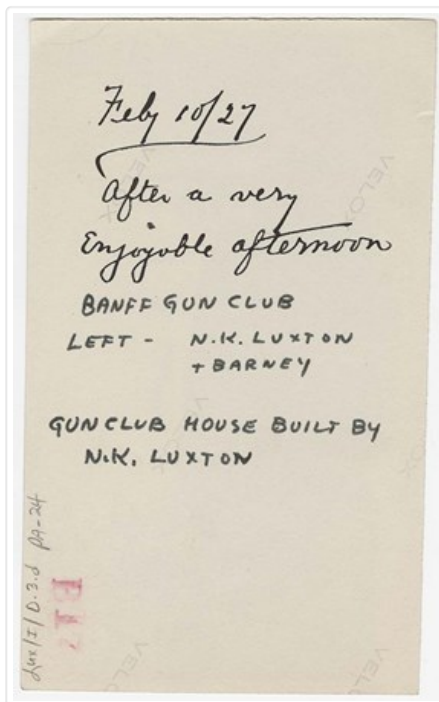 Feby 10/27
After a very
Enjoyable afternoon
BANFF GUN CLUB
LEFT - N.K. LUXTON
+ BARNEY
GUN CLUB HOUSE BUILT BY
N.K. LUXTON
Lux/I/D.3.d PA-24
B17
VELOX
VELOX
VELOX
VELOX